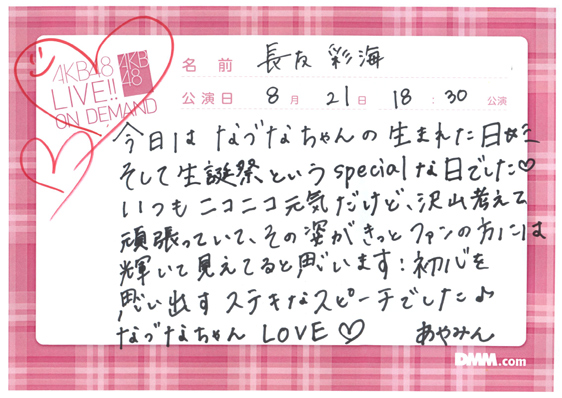 AKB48
LIVE!!
ON DEMAND
AKB
48
名 前 長友 彩海
公演日 8月 21日 18:30 公演
今日は なづなちゃんの 生まれた日
そして 生誕祭という special な日でした♡
いつも ニコニコ 元気だけど、沢山 考えて
頑張っていて、その姿が きっと ファンの方には
輝いて 見えてると 思います！初心を
思い出す ステキなスピーチでした♪
なづなちゃん LOVE ♡ あやみん
DMM.com